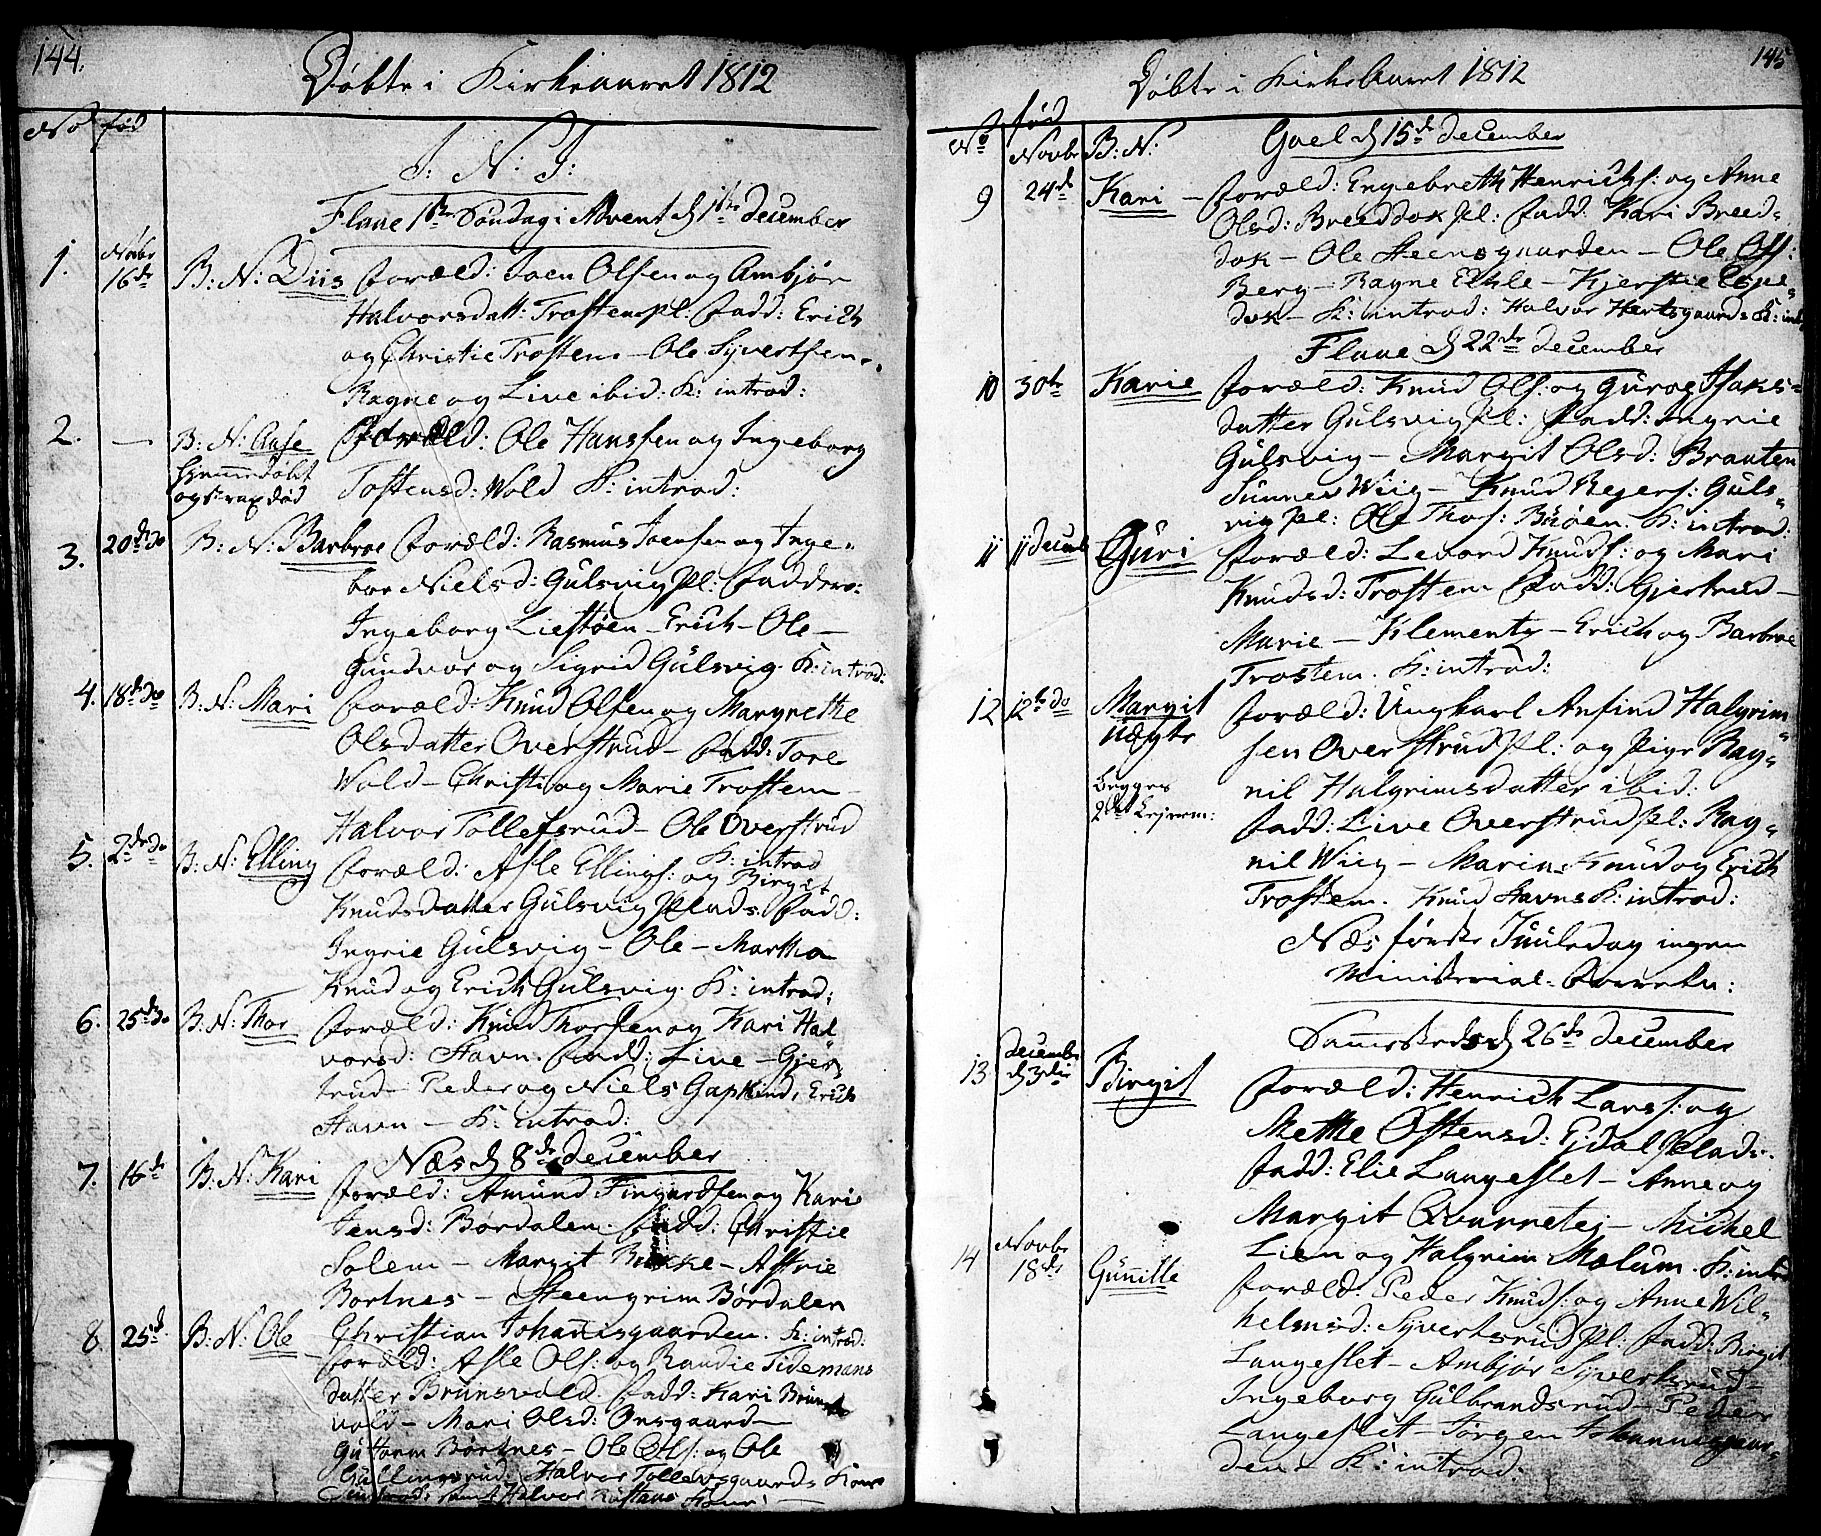 144.
Døbte i Kirkeaaret 1812
No fød
I: N: I:
Flaae 1ste Søndag i Advent d 1ste December
1. Novbr 16de B: N: Diis Foræld: Joen Olsen og Ambjør
Halvorsdatt: Trostem pl: Fadd: Erich
og Christie Trostem - Ole Syvertsem -
Ragne og Live ibid: K: introd:
2. — B: N: Aase Foræld: Ole Hanssen og Ingeborg
Hjemmedøbt
og strax død Tostensd: Wold K: introd:
3. 20de do B: N: Barbroe Foræld: Rasmus Joensen og Inge-
bor Nielsd: Gulsvig pl: Faddere:
Ingeborg Liestøen - Erich - Ole -
Gundvor og Sigrid Gulsvig. K: introd:
4. 18de do B: N: Mari Foræld: Knud Olsen og Margrethe
Olsdatter Overstrud - Fadd: Tore
Wold - Christi og Marie Trostem -
Halvor Tollefsrud - Ole Overstrud
K: introd
5. 2de do B: N: Elling Foræld: Asle Ellings: og Birgit
Knudsdatter Gulsvig Plads. Fadd:
Ingrie Gulsvig - Ole - Martha
Knud og Erich Gulsvig. K: introd:
6. 25de do B: N: Thor Foræld: Knud Thorsen og Kari Hal
vorsd: Stavn. Fadd: Live - Gjer
trud - Peder og Niels Gaptind, Erich
Stavn - K: Introd:
Næs d 8de December
7. 16de B: N: Kari Foræld: Amund Fingardsen og Karie
Jensd: Børdalen. Fadd: Christie
Solem - Margit Bakke - Astrie
Bortnes - Steengrim Børdalen
Christian Johannisgaarden. K: introd:
8 25d B: N: Ole Foræld: Asle Ols: og Randie Tidemans
datter Brunsvold. Fadd: Kari Bruns
vold - Mari Olsd: Onsgaard -
Guttorm Børtnes - Ole Ols: og Ole
Gullingsrud. Halvor Tollevsgaards Kone
introd: samt Halvor Kone:
145
Døbte i KirkeAaret 1812
No fød
Novbr B: N: Goel d 15de December
9 24de Kari - Foræld: Engebreth Henrichs: og Anne
Olsd: Breeddok pl: Fadd: Kari Breed-
dok - Ole Steensgaarden - Ole Ols:
Berg - Ragne Eckle - Kjerstie Bree-
dok - K: introd: Halvor Hertsgaards K: intr
Flaae d 22de December
10 30te Karie Foræld: Knud Ols: og Guroe Isaks-
datter Gulsvig pl: Fadd: Ingrie
Gulsvig - Margit Olsd: Brauten
Sunnev Wiig - Knud Regers: Guls-
vig pl: Ole Thos: Brøen. K: introd:
11 11 Decemb Guri Foræld: Levord Knuds: og Mari
Knudsd: Trostem Fadd: Gjertrud -
Marie - Klementz - Erich og Barbroe
Trostem. K: introd:
12 12te do Margit Foræld: Ungkarl Anfind Halgrim
Uægte sen Overstrud pl: og Pige Rag-
Begges nil Halgrimsdatter ibid:
2det Lejerm: Fadd: Live Overstrud pl: Rag-
nil Wiig - Marie Knud og Erich
Trostem. Knud Stavns K: introd:
Næs første Juuledag ingen
Ministerial-Forretn:
Sammesteds d 26de December
13 December d 3die Birgit Foræld: Henrich Larss: og
Methe Ostensd: Ejdal Plads.
Fadd: Elie Langeslet - Anne og
Margit Qvannetej - Michel
Lien og Halgrim Mælum. K: introd
14 Novbr 18de Gunille Foræld: Peder Knuds: og Anne Wil-
helmsd: Syvertsrud pl: Fadd: Birgit
Langeslet - Ambjør Syvertsrud -
Ingeborg Gulbrandsrud - Peder
Langeslet - Jørgen Johannisgaar-
den - K: introd: